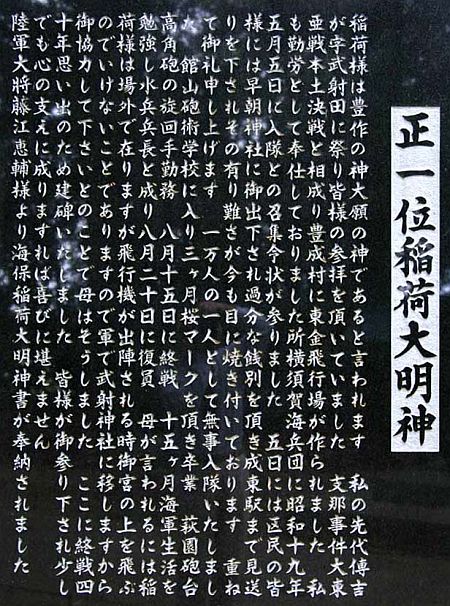 正一位稲荷大明神
稲荷様は豊作の神大願の神であると言われます　私の先代傳吉
が字武射田に祭り皆様の参拝を頂いていました　支那事件大東
亜戦本土決戦と相成り豊成村に東金飛行場が作られました　私
も勤労として奉仕しておりました所横須賀海兵団に昭和十九年
五月五日に入隊との召集令状が参りました　五日には区民の皆
様には早朝神社に御出下され過分な餞別を頂き成東駅まで見送
りを下されその有り難さが今も目に焼き付いております　重ね
て御礼申し上げます　一万人の一人として無事入隊いたしまし
た　館山砲術学校に入り三ヶ月桜マークを頂き卒業　萩園砲台
高角砲の旋回手勤務　八月十五日に終戦　十五ヶ月海軍生活を
勉強し水兵長と成り八月二十日に復員　母が言われるには稲
荷様は場外で在りますが飛行機が出陣される時御宮の上を飛ぶ
のでいけないことでありますので軍で武射神社に移しますから
御協力して下さいとのことで母はそうしました　ここに終戦四
十年思い出のため建碑いたしました　皆様が御参り下され少し
でも心の支えに成りますれば喜びに堪えません
陸軍大将藤江恵輔様より海保稲荷大明神書が奉納されました